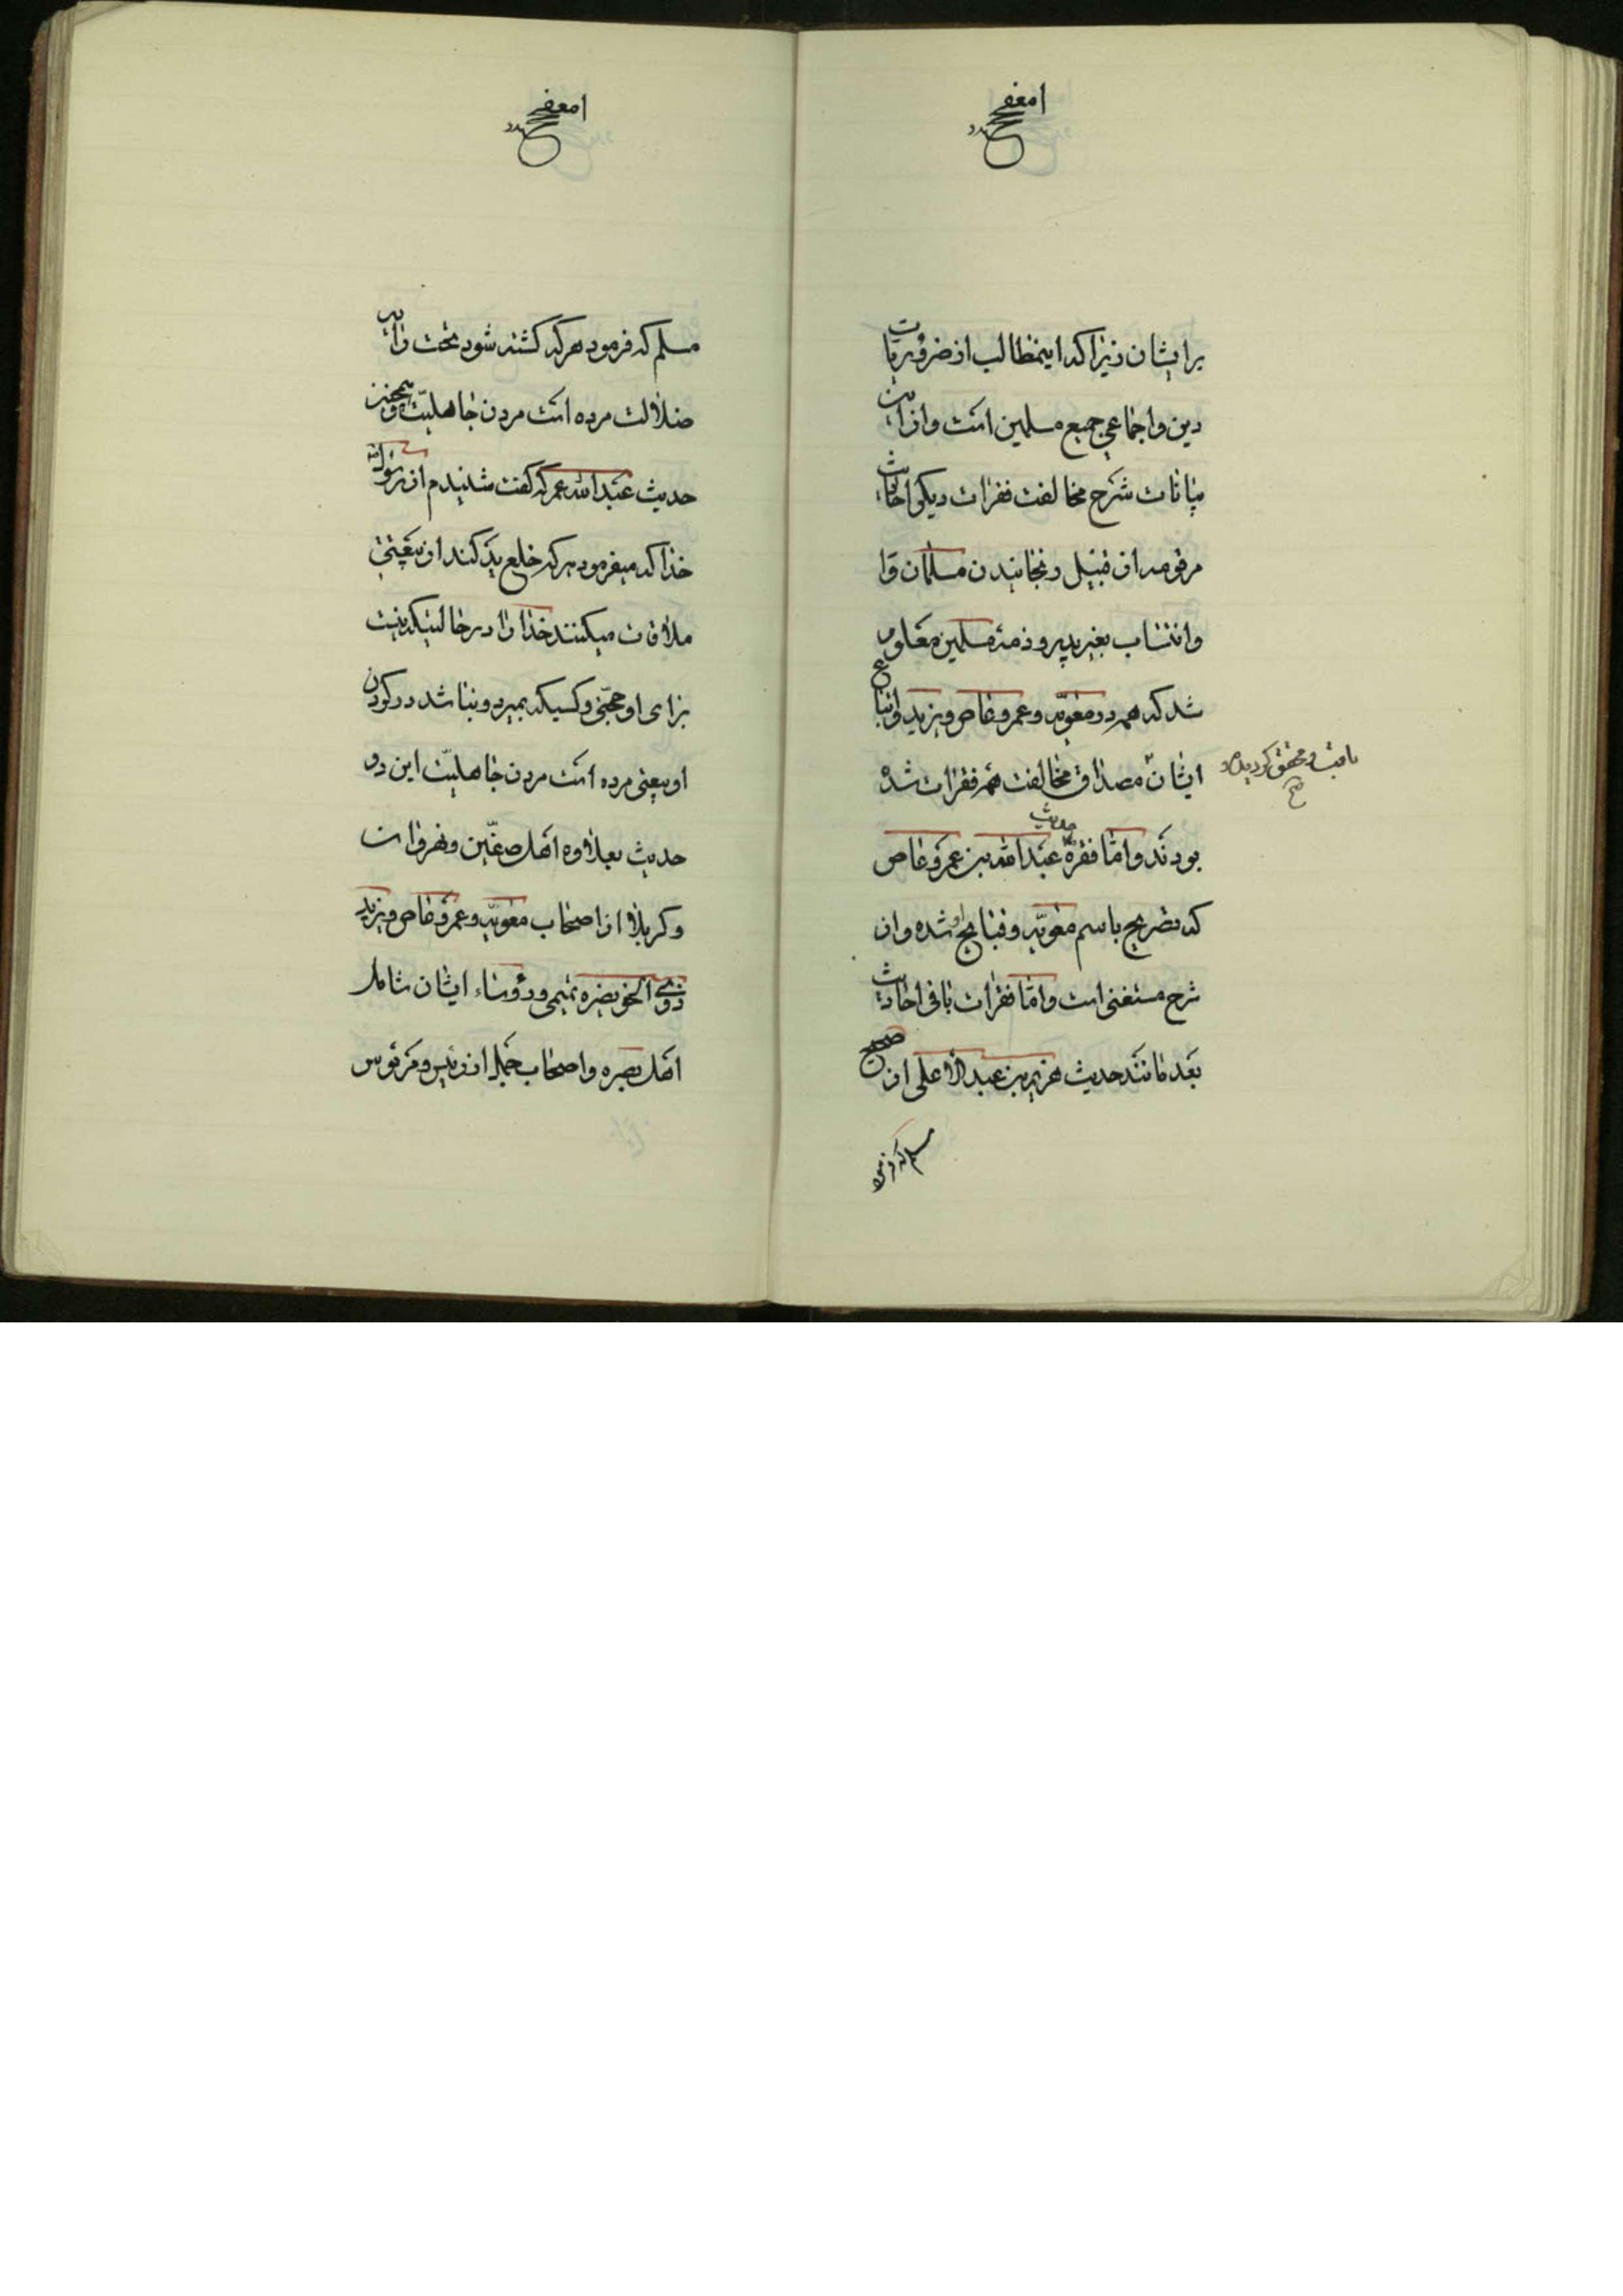 برایشان زیرا که اینمطالب از ضروریات
دین و اجماعی جمیع مسلمین است و از این
بیانات شرح مخالفت فقرات دیگر احادیث
مرقومه از قبیل رنجانیدن مسلمان را
و انتساب بغیر پدر و ذمهٔ مسلمین معلوم
شد که همه در معویّه و عمرو عاص و یزید و اتباع
ایشان مصداق مخالفت همه فقرات شده
بودند و امّا فقرهٔ حدیث عبدالله بن عمرو عاص
که تصریح باسم معویّه و قبایح او شده و از
شرح مستغنی است و امّا فقرات باقی احادیث
بعد مانند حدیث هریم بن عبدالأعلی از صحیح
مسلم که فرمود
مسلم که فرمود هرکه کشته شود تحت رایه
ضلالت مرده است مردن جاهلیّت و همچنین
حدیث عبدالله عمر که گفت شنیدم از رسول
خدا که میفرمود هرکه خلع ید کند از بیعتی
ملاقات میکنند خدا را در حالتیکه نیست
برای او حجّتی و کسیکه بمیرد و نباشد در گردن
او بیعتی مرده است مردن جاهلیّت این دو
حدیث بعلاوه اهل صفّین و نهروان
و کربلا از اصحاب معویّه و عمرو عاص و یزید
ذی الخویصره تمیمی و رؤساء ایشان شامل
اهل بصره و اصحاب جمل از رئیس و مرئوس